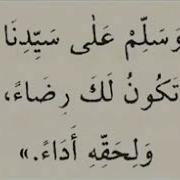 وَسَلِّمْ عَلٰى سَيِّدِنَا
تَكُونُ لَكَ رِضَاءً،
وَلِحَقِّهِ أَدَاءً.»